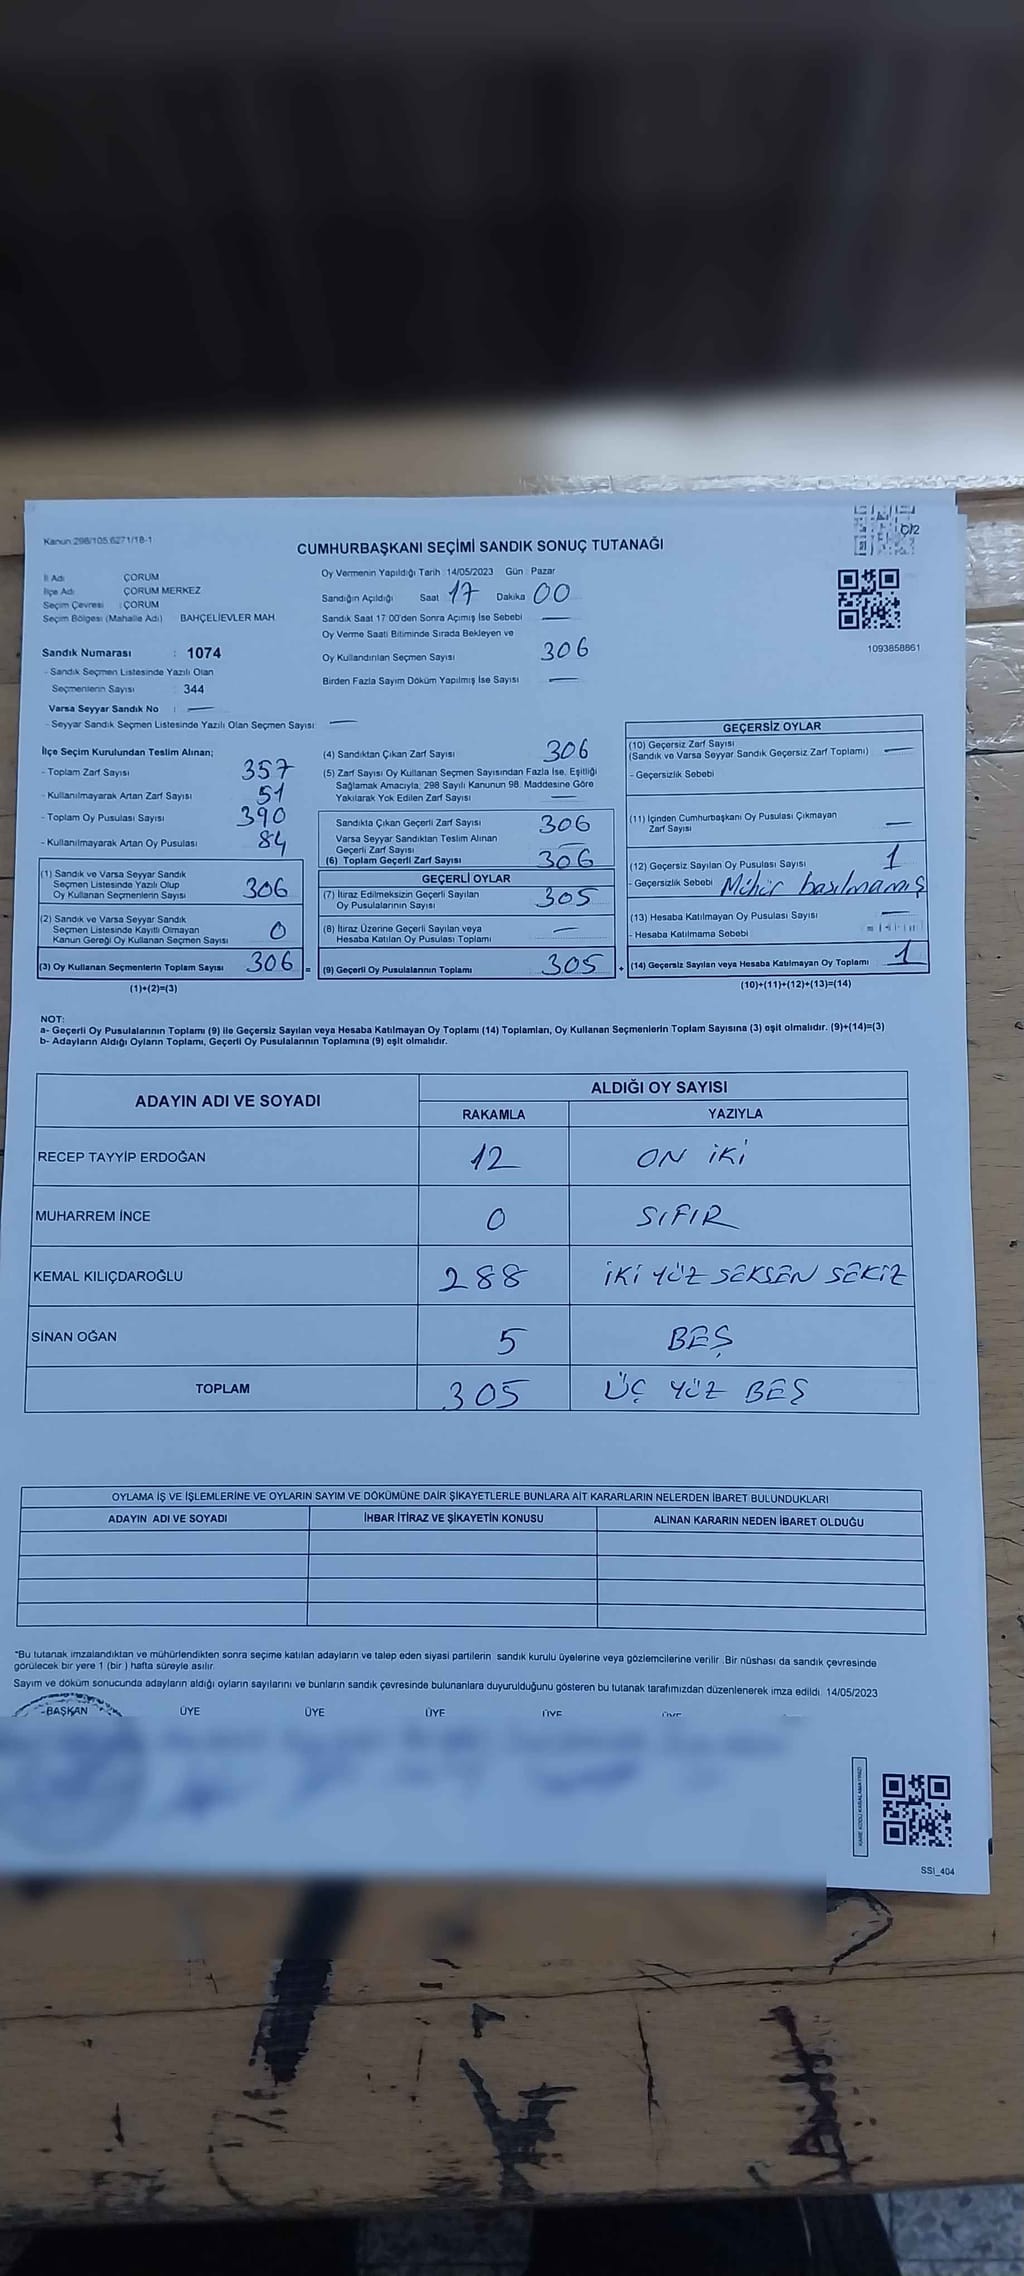 Kanun:298/105.6271/18-1
C/2
CUMHURBAŞKANI SEÇİMİ SANDIK SONUÇ TUTANAĞI
İl Adı : ÇORUM
İlçe Adı : ÇORUM MERKEZ
Seçim Çevresi : ÇORUM
Seçim Bölgesi (Mahalle Adı) BAHÇELİEVLER MAH.
Sandık Numarası : 1074
- Sandık Seçmen Listesinde Yazılı Olan
Seçmenlerin Sayısı : 344
Varsa Seyyar Sandık No : —
- Seyyar Sandık Seçmen Listesinde Yazılı Olan Seçmen Sayısı: —
Oy Vermenin Yapıldığı Tarih :14/05/2023 Gün : Pazar
Sandığın Açıldığı Saat 17 Dakika 00
Sandık Saat 17:00'den Sonra Açımış İse Sebebi —
Oy Verme Saati Bitiminde Sırada Bekleyen ve
Oy Kullandırılan Seçmen Sayısı 306
Birden Fazla Sayım Döküm Yapılmış İse Sayısı —
1093858861
İlçe Seçim Kurulundan Teslim Alınan;
- Toplam Zarf Sayısı 357
- Kullanılmayarak Artan Zarf Sayısı 51
- Toplam Oy Pusulası Sayısı 390
- Kullanılmayarak Artan Oy Pusulası 84
(1) Sandık ve Varsa Seyyar Sandık
Seçmen Listesinde Yazılı Olup
Oy Kullanan Seçmenlerin Sayısı 306
(2) Sandık ve Varsa Seyyar Sandık
Seçmen Listesinde Kayıtlı Olmayan
Kanun Gereği Oy Kullanan Seçmen Sayısı 0
(3) Oy Kullanan Seçmenlerin Toplam Sayısı 306 =
(1)+(2)=(3)
(4) Sandıktan Çıkan Zarf Sayısı 306
(5) Zarf Sayısı Oy Kullanan Seçmen Sayısından Fazla İse, Eşitliği
Sağlamak Amacıyla, 298 Sayılı Kanunun 98. Maddesine Göre
Yakılarak Yok Edilen Zarf Sayısı —
Sandıkta Çıkan Geçerli Zarf Sayısı 306
Varsa Seyyar Sandıktan Teslim Alınan
Geçerli Zarf Sayısı —
(6) Toplam Geçerli Zarf Sayısı 306
GEÇERLİ OYLAR
(7) İtiraz Edilmeksizin Geçerli Sayılan
Oy Pusulalarının Sayısı 305
(8) İtiraz Üzerine Geçerli Sayılan veya
Hesaba Katılan Oy Pusulası Toplamı —
(9) Geçerli Oy Pusulalarının Toplamı 305 +
GEÇERSİZ OYLAR
(10) Geçersiz Zarf Sayısı
(Sandık ve Varsa Seyyar Sandık Geçersiz Zarf Toplamı) —
- Geçersizlik Sebebi
(11) İçinden Cumhurbaşkanı Oy Pusulası Çıkmayan
Zarf Sayısı —
(12) Geçersiz Sayılan Oy Pusulası Sayısı 1
- Geçersizlik Sebebi Mühür basılmamış
(13) Hesaba Katılmayan Oy Pusulası Sayısı —
- Hesaba Katılmama Sebebi
(14) Geçersiz Sayılan veya Hesaba Katılmayan Oy Toplamı 1
(10)+(11)+(12)+(13)=(14)
NOT:
a- Geçerli Oy Pusulalarının Toplamı (9) ile Geçersiz Sayılan veya Hesaba Katılmayan Oy Toplamı (14) Toplamları, Oy Kullanan Seçmenlerin Toplam Sayısına (3) eşit olmalıdır. (9)+(14)=(3)
b- Adayların Aldığı Oyların Toplamı, Geçerli Oy Pusulalarının Toplamına (9) eşit olmalıdır.
ADAYIN ADI VE SOYADI ALDIĞI OY SAYISI
RAKAMLA YAZIYLA
RECEP TAYYİP ERDOĞAN 12 ON İKİ
MUHARREM İNCE 0 SIFIR
KEMAL KILIÇDAROĞLU 288 İKİ YÜZ SEKSEN SEKİZ
SİNAN OĞAN 5 BEŞ
TOPLAM 305 ÜÇ YÜZ BEŞ
OYLAMA İŞ VE İŞLEMLERİNE VE OYLARIN SAYIM VE DÖKÜMÜNE DAİR ŞİKAYETLERLE BUNLARA AİT KARARLARIN NELERDEN İBARET BULUNDUKLARI
ADAYIN ADI VE SOYADI İHBAR İTİRAZ VE ŞİKAYETİN KONUSU ALINAN KARARIN NEDEN İBARET OLDUĞU
*Bu tutanak imzalandıktan ve mühürlendikten sonra seçime katılan adayların ve talep eden siyasi partilerin sandık kurulu üyelerine veya gözlemcilerine verilir. Bir nüshası da sandık çevresinde
görülecek bir yere 1 (bir ) hafta süreyle asılır.
Sayım ve döküm sonucunda adayların aldığı oyların sayılarını ve bunların sandık çevresinde bulunanlara duyurulduğunu gösteren bu tutanak tarafımızdan düzenlenerek imza edildi. 14/05/2023
BAŞKAN ÜYE ÜYE ÜYE ÜYE ÜYE
KARE KODU KARALAMAYINIZ!
SSI_404